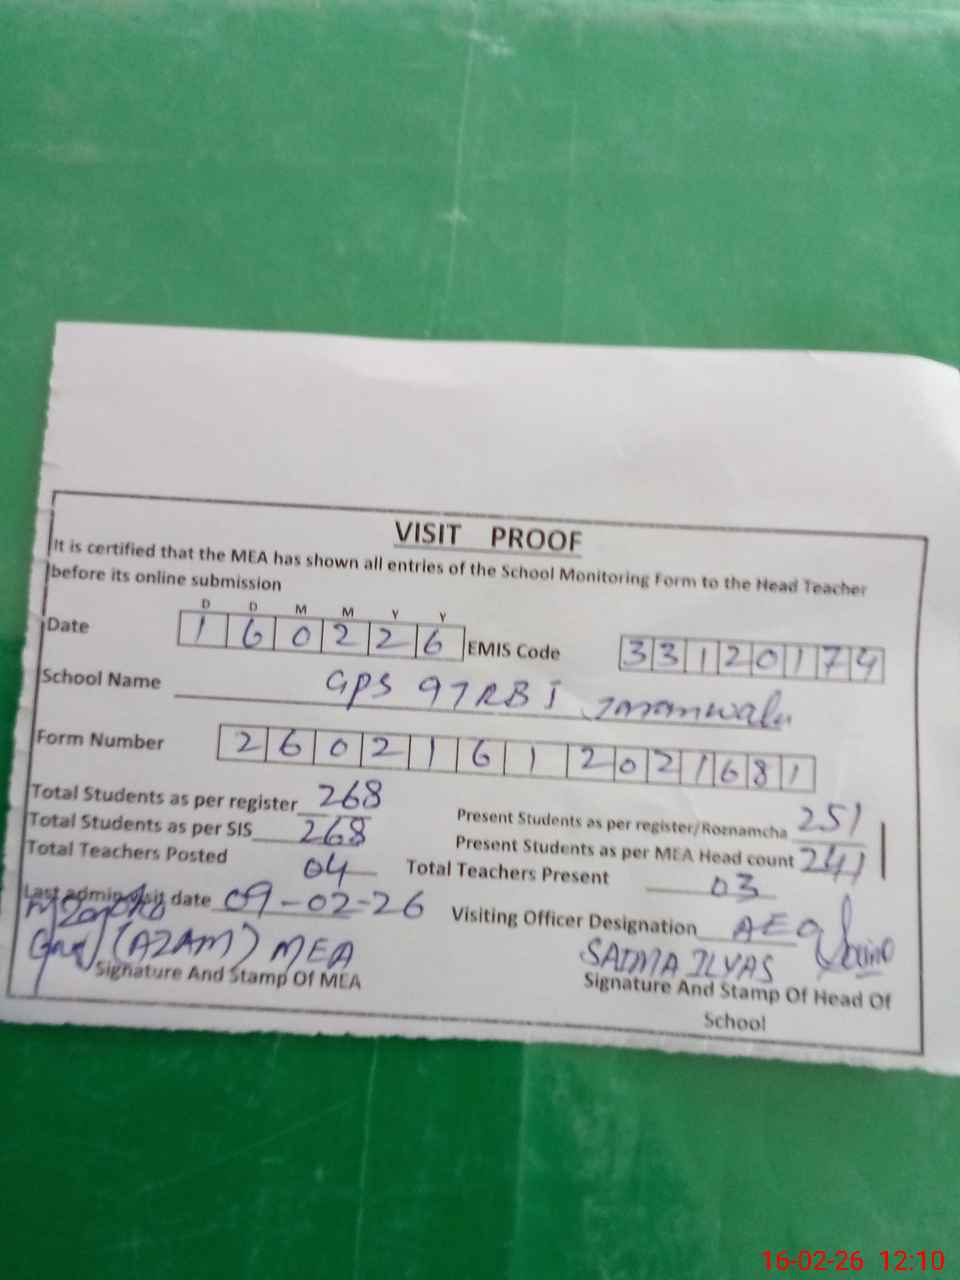 VISIT PROOF
It is certified that the MEA has shown all entries of the School Monitoring Form to the Head Teacher
before its online submission
D D M M Y Y
Date 1 6 0 2 2 6 EMIS Code 3 3 1 2 0 1 7 4
School Name GPS 97 RB I Jaranwala
Form Number 2 6 0 2 1 6 1 2 0 2 1 6 8 1
Total Students as per register 268 Present Students as per register/Roznamcha 251
Total Students as per SIS 268 Present Students as per MEA Head count 241
Total Teachers Posted 04 Total Teachers Present 03
Last admin visit date 09-02-26 Visiting Officer Designation AEO
(AZAM) MEA SAIMA ILYAS
Signature And Stamp Of MEA Signature And Stamp Of Head Of
School
16-02-26 12:10